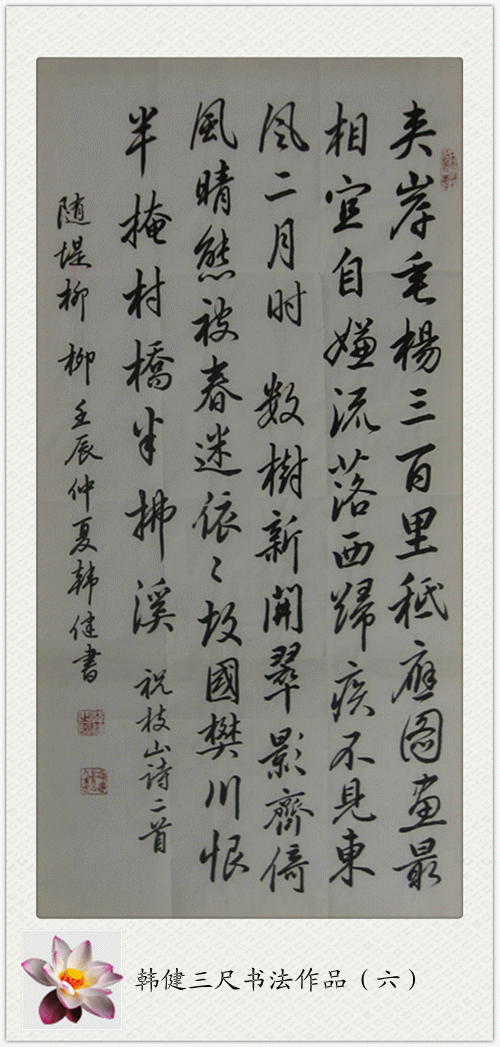 夹岸垂楊三百里秖應圖畫最
相宜自嫌流落西歸疾不見東
风二月时 数樹新開翠影齊倚
風晴態被春迷依〻故國樊川恨
半掩村橋半拂溪 祝枝山诗二首
随堤柳 柳 壬辰仲夏韩健書
韩健三尺书法作品（六）